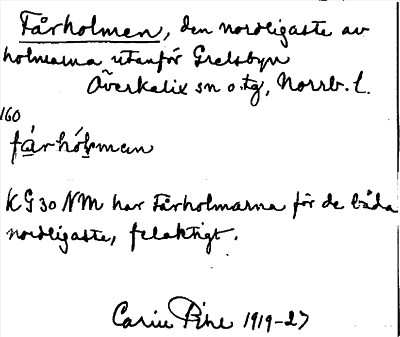 Fårholmen, den nordligaste av
holmarna utanför Grelsbyn
Överkalix sn o. tg, Norrb. l.
160
fárhólmen
KG 30 NM har Fårholmarna för de båda
nordligaste, felaktigt.
Carin Pihl 1919-27